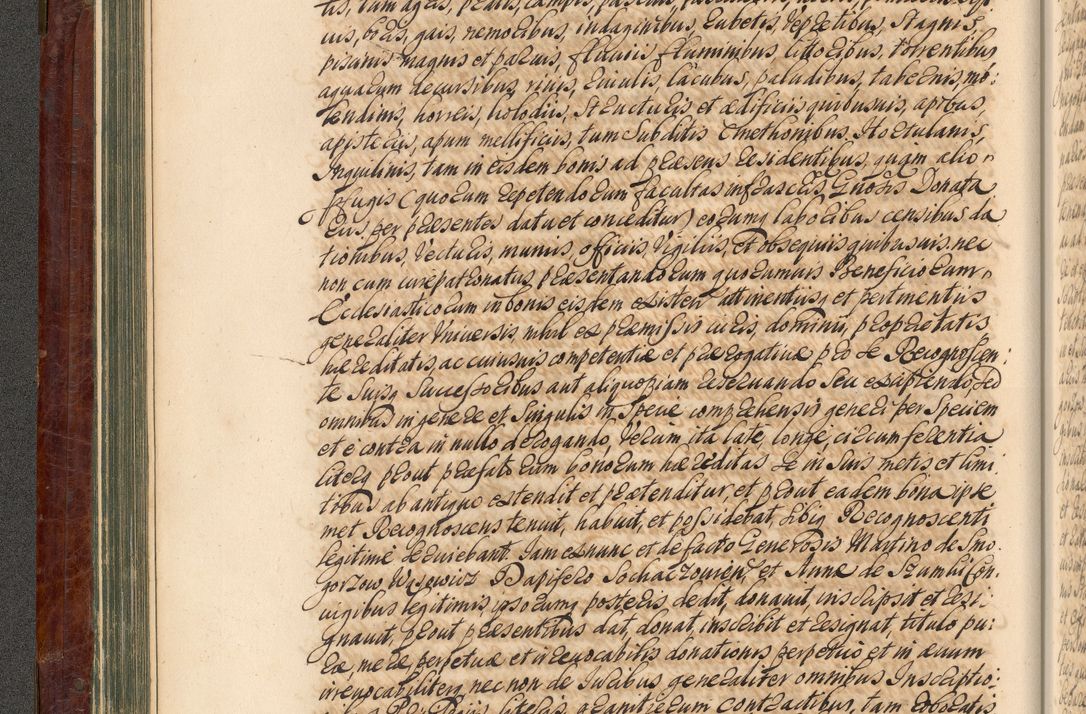 uis, boris, gais, nemoribus, indaginibus, rubetis, vepretibus, Stagnis,
piscinis magnis et paruis, fluuiis fluminibus litoribus, torrentibus
aquarum decursibus, riuis, riuulis, lacubus, paludibus, tabernis, mo:
lendinis, horreis, holodiis, Structuris et ædificiis quibusuis, apibus,
apisteriis, apum mellificiis, tum Subditis Cmethonibus, Hortulanis,
Inquilinis, tam in eisdem bonis ad præsens residentibus, quam alio
profugis (quorum repetendorum facultas infrascriptis Gnosis Donata
riis, per præsentes datur et conceditur) eorumq laboribus censibus da
tionibus, Vecturis, muniis, officiis, Vigiliis, et obsequiis quibusuis, nec
non cum iurepatronatus, præsentandorum quorumuis Beneficiorum
Ecclesiasticorum in bonis eisdem existen attinentiisq et pertinentiis
generaliter Vniuersis, nihil ex præmissis iuris, dominii, proprietatis
hæreditatis, ac cuiusuis competentiæ et prærogatiuæ pro se Recognoscen:
te Suisq Successoribus aut aliquopiam reseruando Seu excipiendo, Sed
omnibus in genere et Singulis in Specie comprehensis generi per Speciem
et e contra in nullo derogando, Verum ita late, longe, circumferentia
literq prout præfatorum bonorum hæreditas se in Suis metis et limi
tibus ab antiquo extendit et prætenditur, et prout eadem bona ipse
met Recognoscens tenuit, habuit, et possidebat, Sibiq Recognoscenti
legitime Seruiebant. Iam exnunc et de facto Generosis Martino de Smo:
gorzow Wąsowicz Dapifero Sochaczouien, et Annæ de Szamhi Con:
iugibus legitimis, ipsorumq posteris dedit, donauit, inscripsit et resi:
gnauit, prout præsentibus dat, donat, inscribit et resignat, titulo pu:
ræ, meræ, perpetuæ et irreuocabilis donationis perpetuo et in æuum
irreuocabiliterq, nec non de Iuribus generaliter omnibus Inscriptio: